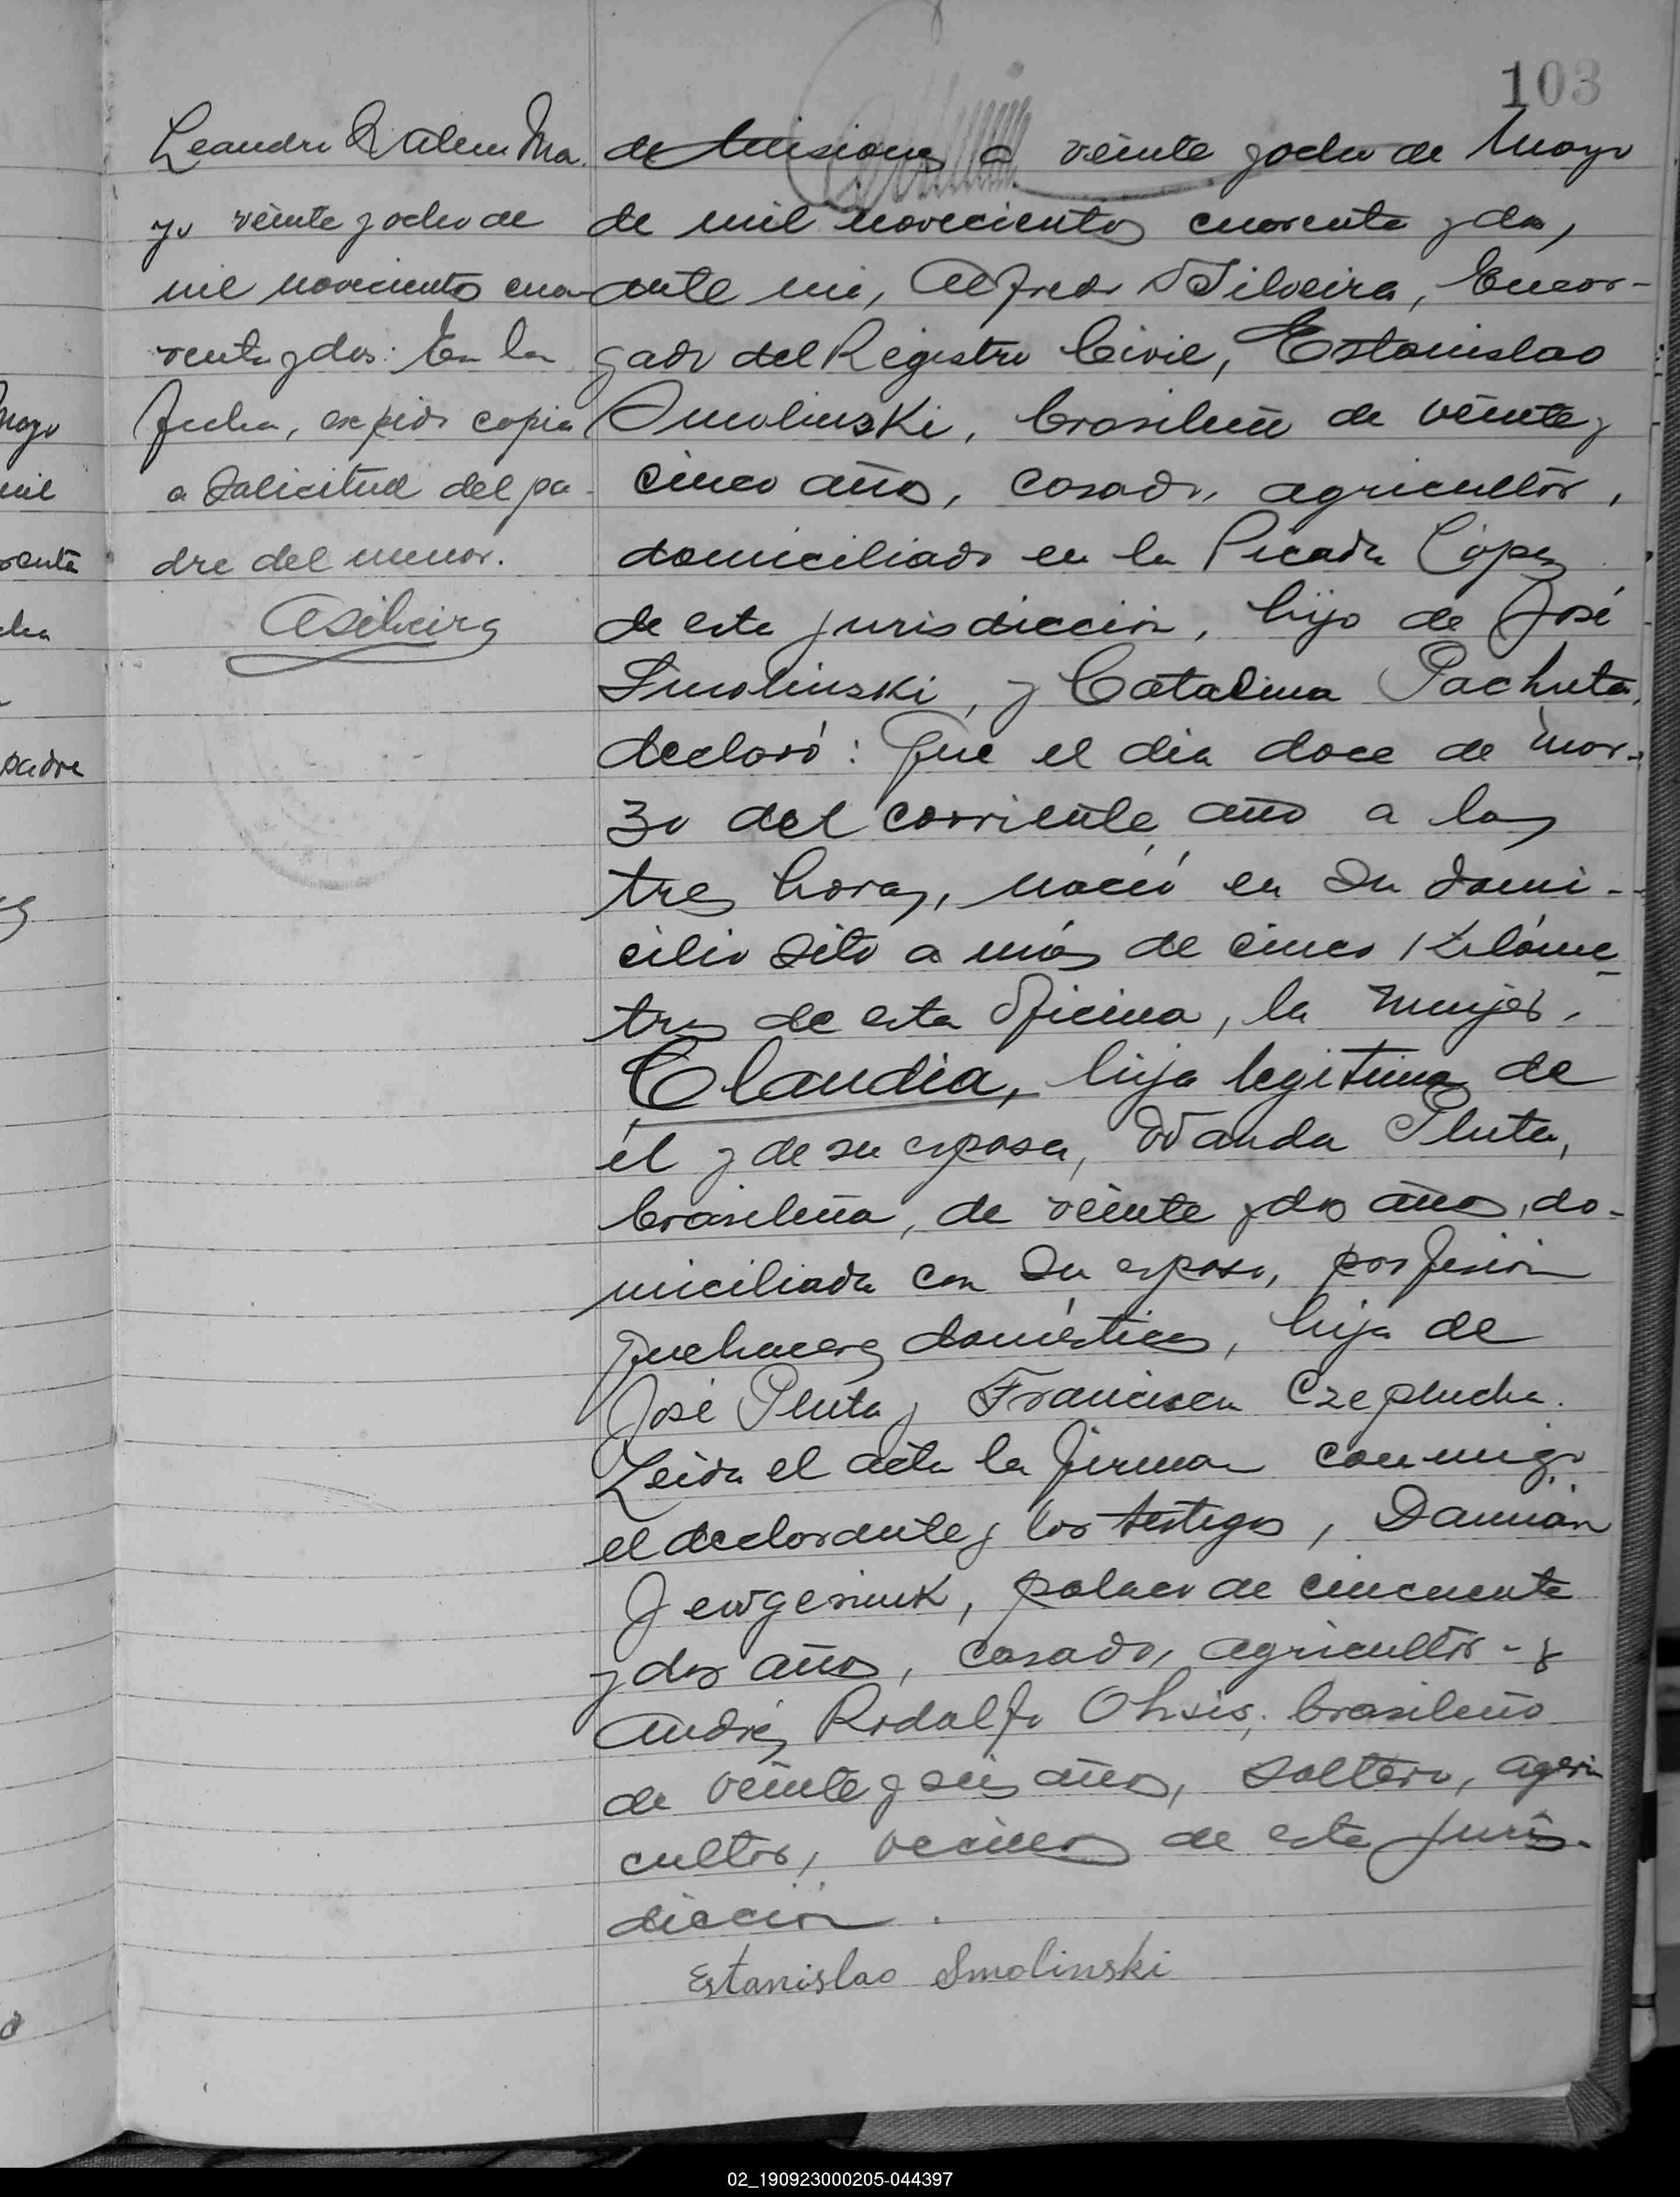 103
Leandro N Alem Ma
yo veinte y ocho de
mil novecientos cua
renta y dos: En la
fecha, expido copia
a solicitud del pa-
dre del menor.
ASilveira
de Misiones a veinte y ocho de Mayo
de mil novecientos cuarenta y dos,
ante mi, Alfredo Silveira, Encar-
gado del Registro Civil, Estanislao
Smolinski, brasileño de veinte y
cinco años, casado, agricultor,
domiciliado en la Picada López
de esta jurisdicción, hijo de José
Smolinski, y Catalina Pachuta,
declaró: Que el dia doce de Mar-
zo del corriente año a las
tres horas, nació en su domi-
cilio sito a más de cinco Kilóme-
tros de esta Oficina, la mujer,
Claudia, hija legitima de
él y de su esposa, Wanda Pluta,
brasileña, de veinte y dos años, do-
miciliada con su esposo, porfesión
quehaceres domésticos, hija de
José Pluta y Francisca Czeplucha.
Leida el acta la firman conmigo
el declarante y los testigos, Damián
Jewgeniuk, polaco de cincuenta
y dos años, casado, agricultor - y
Andrés Rodolfo Ohsis, brasileño
de veinte y seis años, soltero, agri
cultor, vecinos de esta juris-
dicción.
Estanislao Smolinski
mayo
mil
renta
cha
padre
02_190923000205-044397